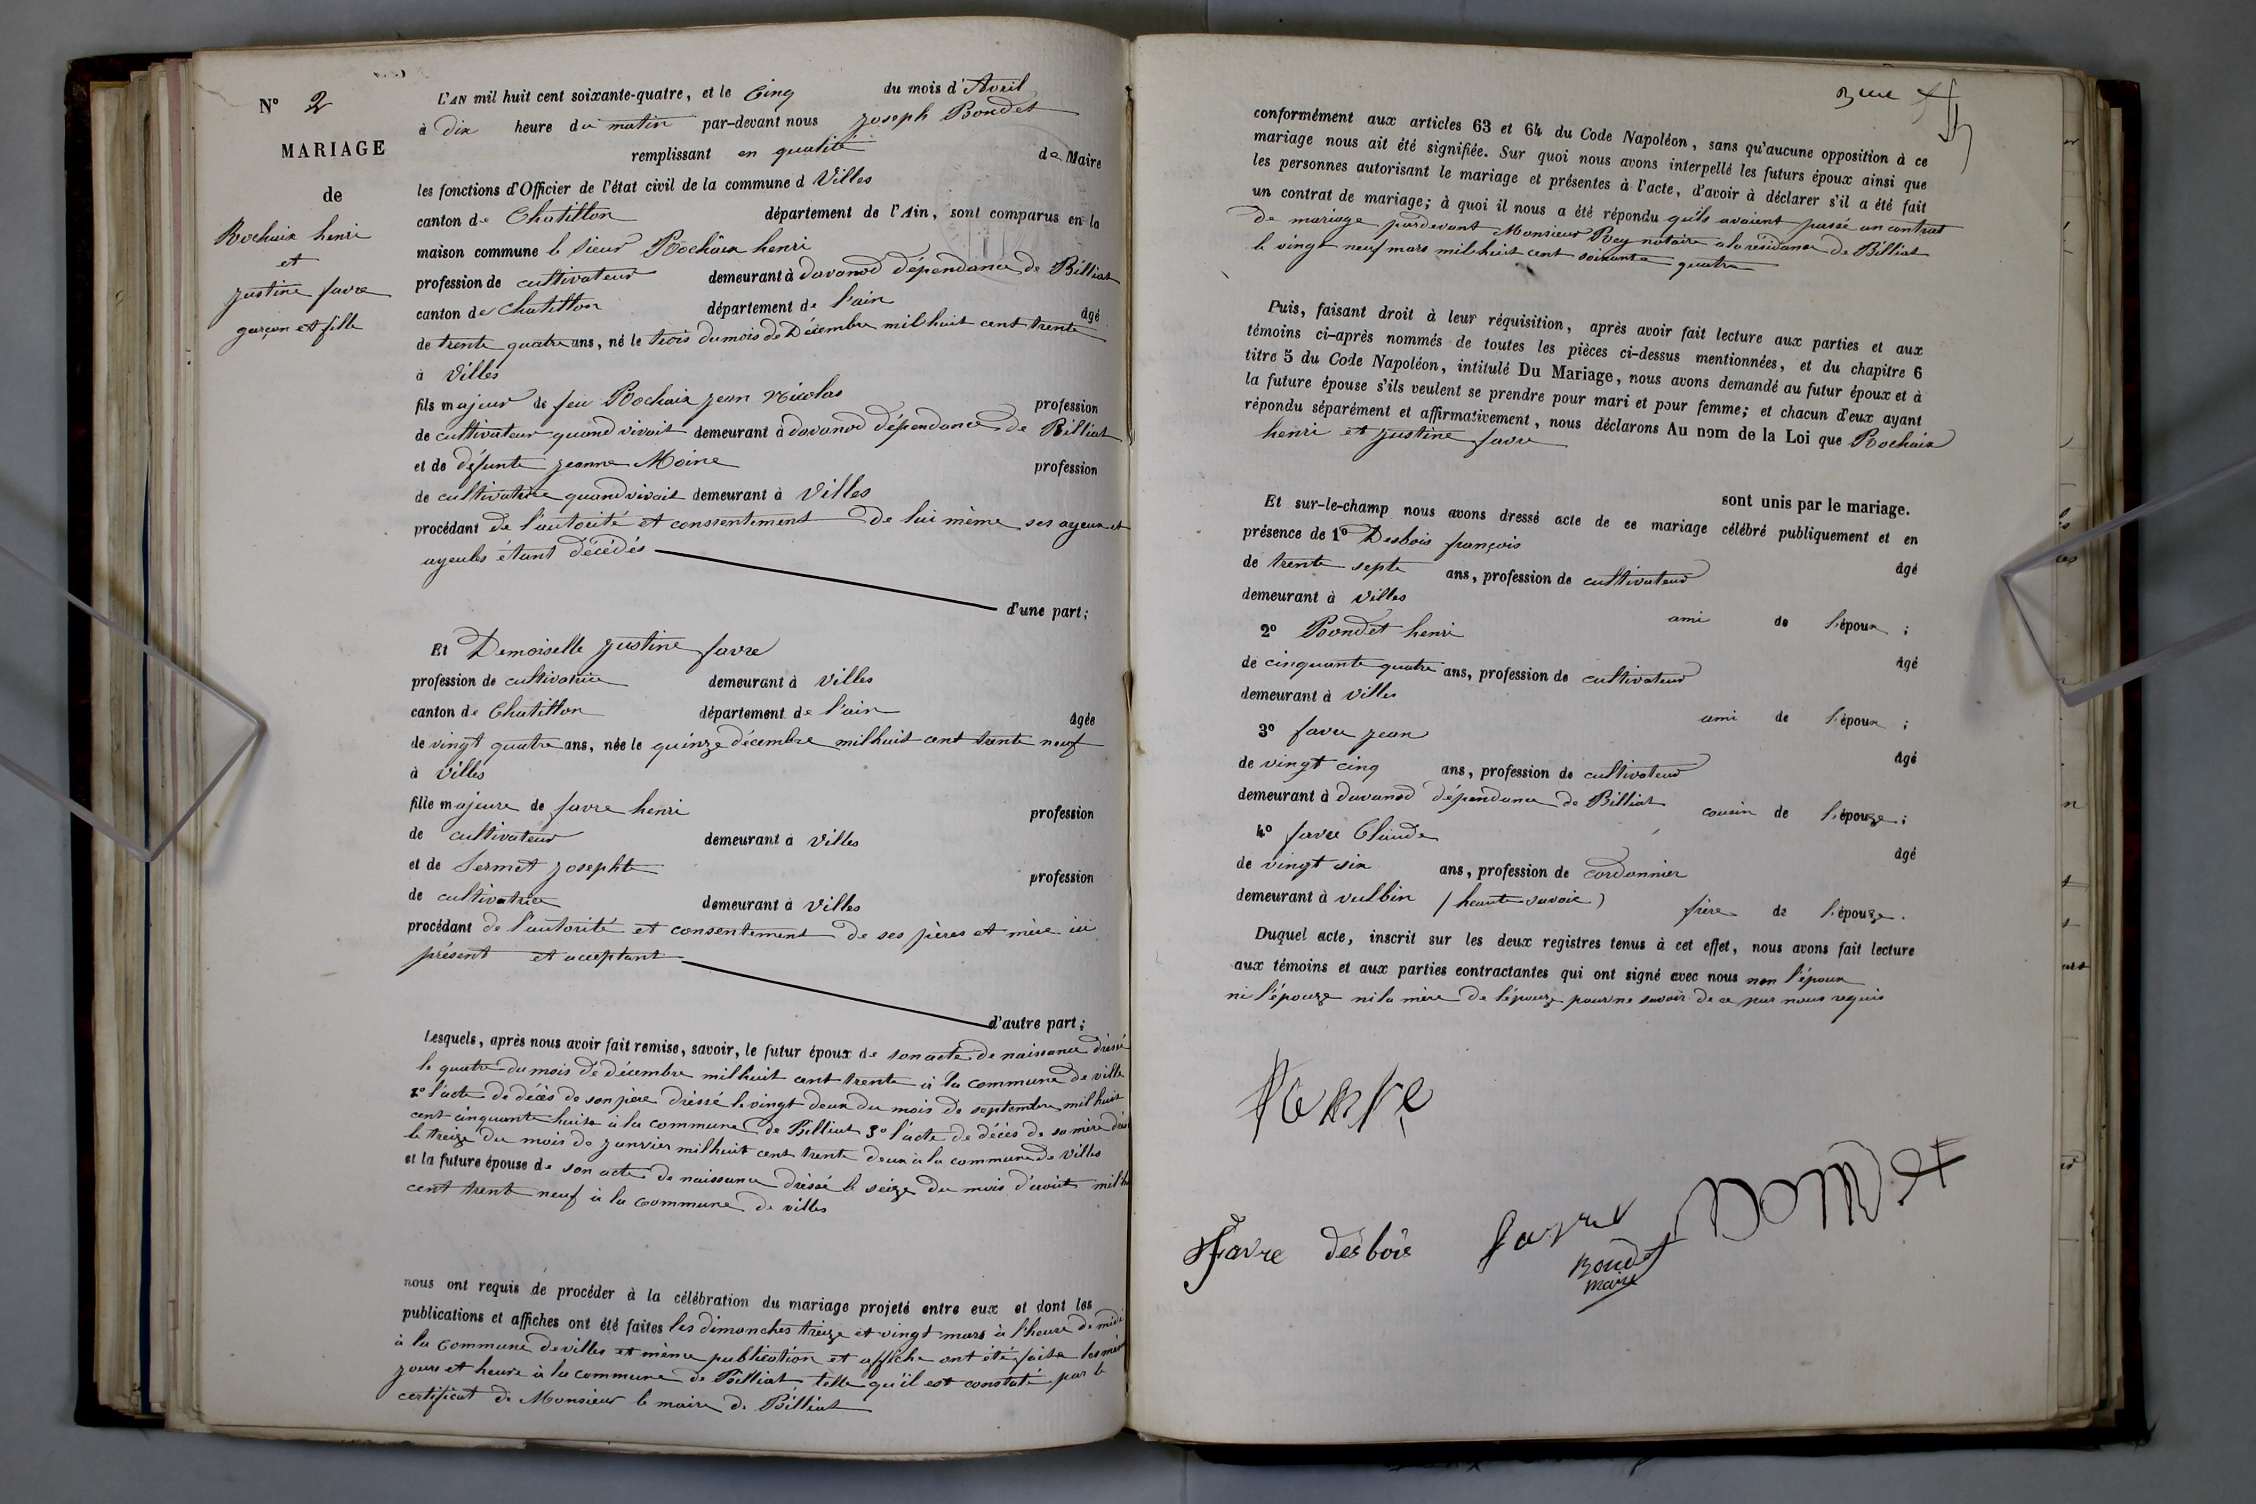 N° 2
MARIAGE
de
Rochaix henri
et
justine favre
garçon et fille
L'AN mil huit cent soixante-quatre, et le Cinq du mois d'Avril
à dix heure du matin par-devant nous joseph Bondet
remplissant en qualité de Maire
les fonctions d'Officier de l'état civil de la commune d Villes
canton de Chatillon département de l'Ain, sont comparus en la
maison commune le sieur Rochaix henri
profession de cultivateur demeurant à davanod dépendance de Billiat
canton de Chatillon département de l'ain âgé
de trente quatre ans, né le trois du mois de Décembre mil huit cent trente
à Villes
fils majeur de feu Rochaix jean Nicolas profession
de cultivateur quand vivait demeurant à davanod dépendance de Billiat
et de défunte jeanne Moine profession
de cultivatrice quand vivait demeurant à Villes
procédant de l'autorité et conssentement de lui même ses ayeux et
ayeules étant décédés
d'une part;
Et Demoiselle justine favre
profession de cultivatrice demeurant à villes
canton de Chatillon département de l'ain âgée
de vingt quatre ans, née le quinze décembre mil huit cent trente neuf
à villes
fille majeure de favre henri profession
de cultivateur demeurant à villes
et de Sermet josephte profession
de cultivatrice demeurant à villes
procédant de l'autorité et consentement de ses pères et mère ici
présent et acceptant
d'autre part;
Lesquels, après nous avoir fait remise, savoir, le futur époux de son acte de naissance dressé
le quatre du mois de décembre mil huit cent trente à la commune de ville
2° l'acte de décès de son père dressé le vingt deux du mois de septembre mil huit
cent cinquante huite à la commune de Billiat 3° l'acte de décès de sa mère
le treize du mois de janvier mil huit cent trente deux à la commune de Villes
et la future épouse de son acte de naissance dressé le seize du mois d'août
cent trente neuf à la commune de villes
nous ont requis de procéder à la célébration du mariage projeté entre eux et dont les
publications et affiches ont été faites les dimanches treize et vingt mars à l'heure de midi
à la commune de villes et même publication et affiche ont été faite les
jours et heure à la commune de Billiat telle qu'il est constaté par le
certificat de Monsieur le maire de Billiat
conformément aux articles 63 et 64 du Code Napoléon, sans qu'aucune opposition à ce
mariage nous ait été signifiée. Sur quoi nous avons interpellé les futurs époux ainsi que
les personnes autorisant le mariage et présentes à l'acte, d'avoir à déclarer s'il a été fait
un contrat de mariage; à quoi il nous a été répondu qu'ils avaient passé un contrat
de mariage pardevant Monsieur Rey notaire a la résidance de Billiat
le vingt neuf mars mil huit cent soixante quatre
Puis, faisant droit à leur réquisition, après avoir fait lecture aux parties et aux
témoins ci-après nommés de toutes les pièces ci-dessus mentionnées, et du chapitre 6
titre 5 du Code Napoléon, intitulé Du Mariage, nous avons demandé au futur époux et à
la future épouse s'ils veulent se prendre pour mari et pour femme; et chacun d'eux ayant
répondu séparément et affirmativement, nous déclarons Au nom de la Loi que Rochaix
henri et justine favre
sont unis par le mariage.
Et sur-le-champ nous avons dressé acte de ce mariage célébré publiquement et en
présence de 1° Desbois françois âgé
de trente septe ans, profession de cultivateur
demeurant à villes ami de l'époux ;
2° Bondet henri âgé
de cinquante quatre ans, profession de cultivateur
demeurant à villes ami de l'époux ;
3° favre jean âgé
de vingt cinq ans, profession de cultivateur
demeurant à davanod dépendance de Billiat cousin de l'épouze ;
4° favre Claude âgé
de vingt six ans, profession de cordonnier
demeurant à vulbin (haute savoie) frère de l'épouze .
Duquel acte, inscrit sur les deux registres tenus à cet effet, nous avons fait lecture
aux témoins et aux parties contractantes qui ont signé avec nous non l'époux
ni l'épouze ni la mère de l'épouze pour ne savoir de ce par nous requis
Favre desbois Bondet
Bondet
maire